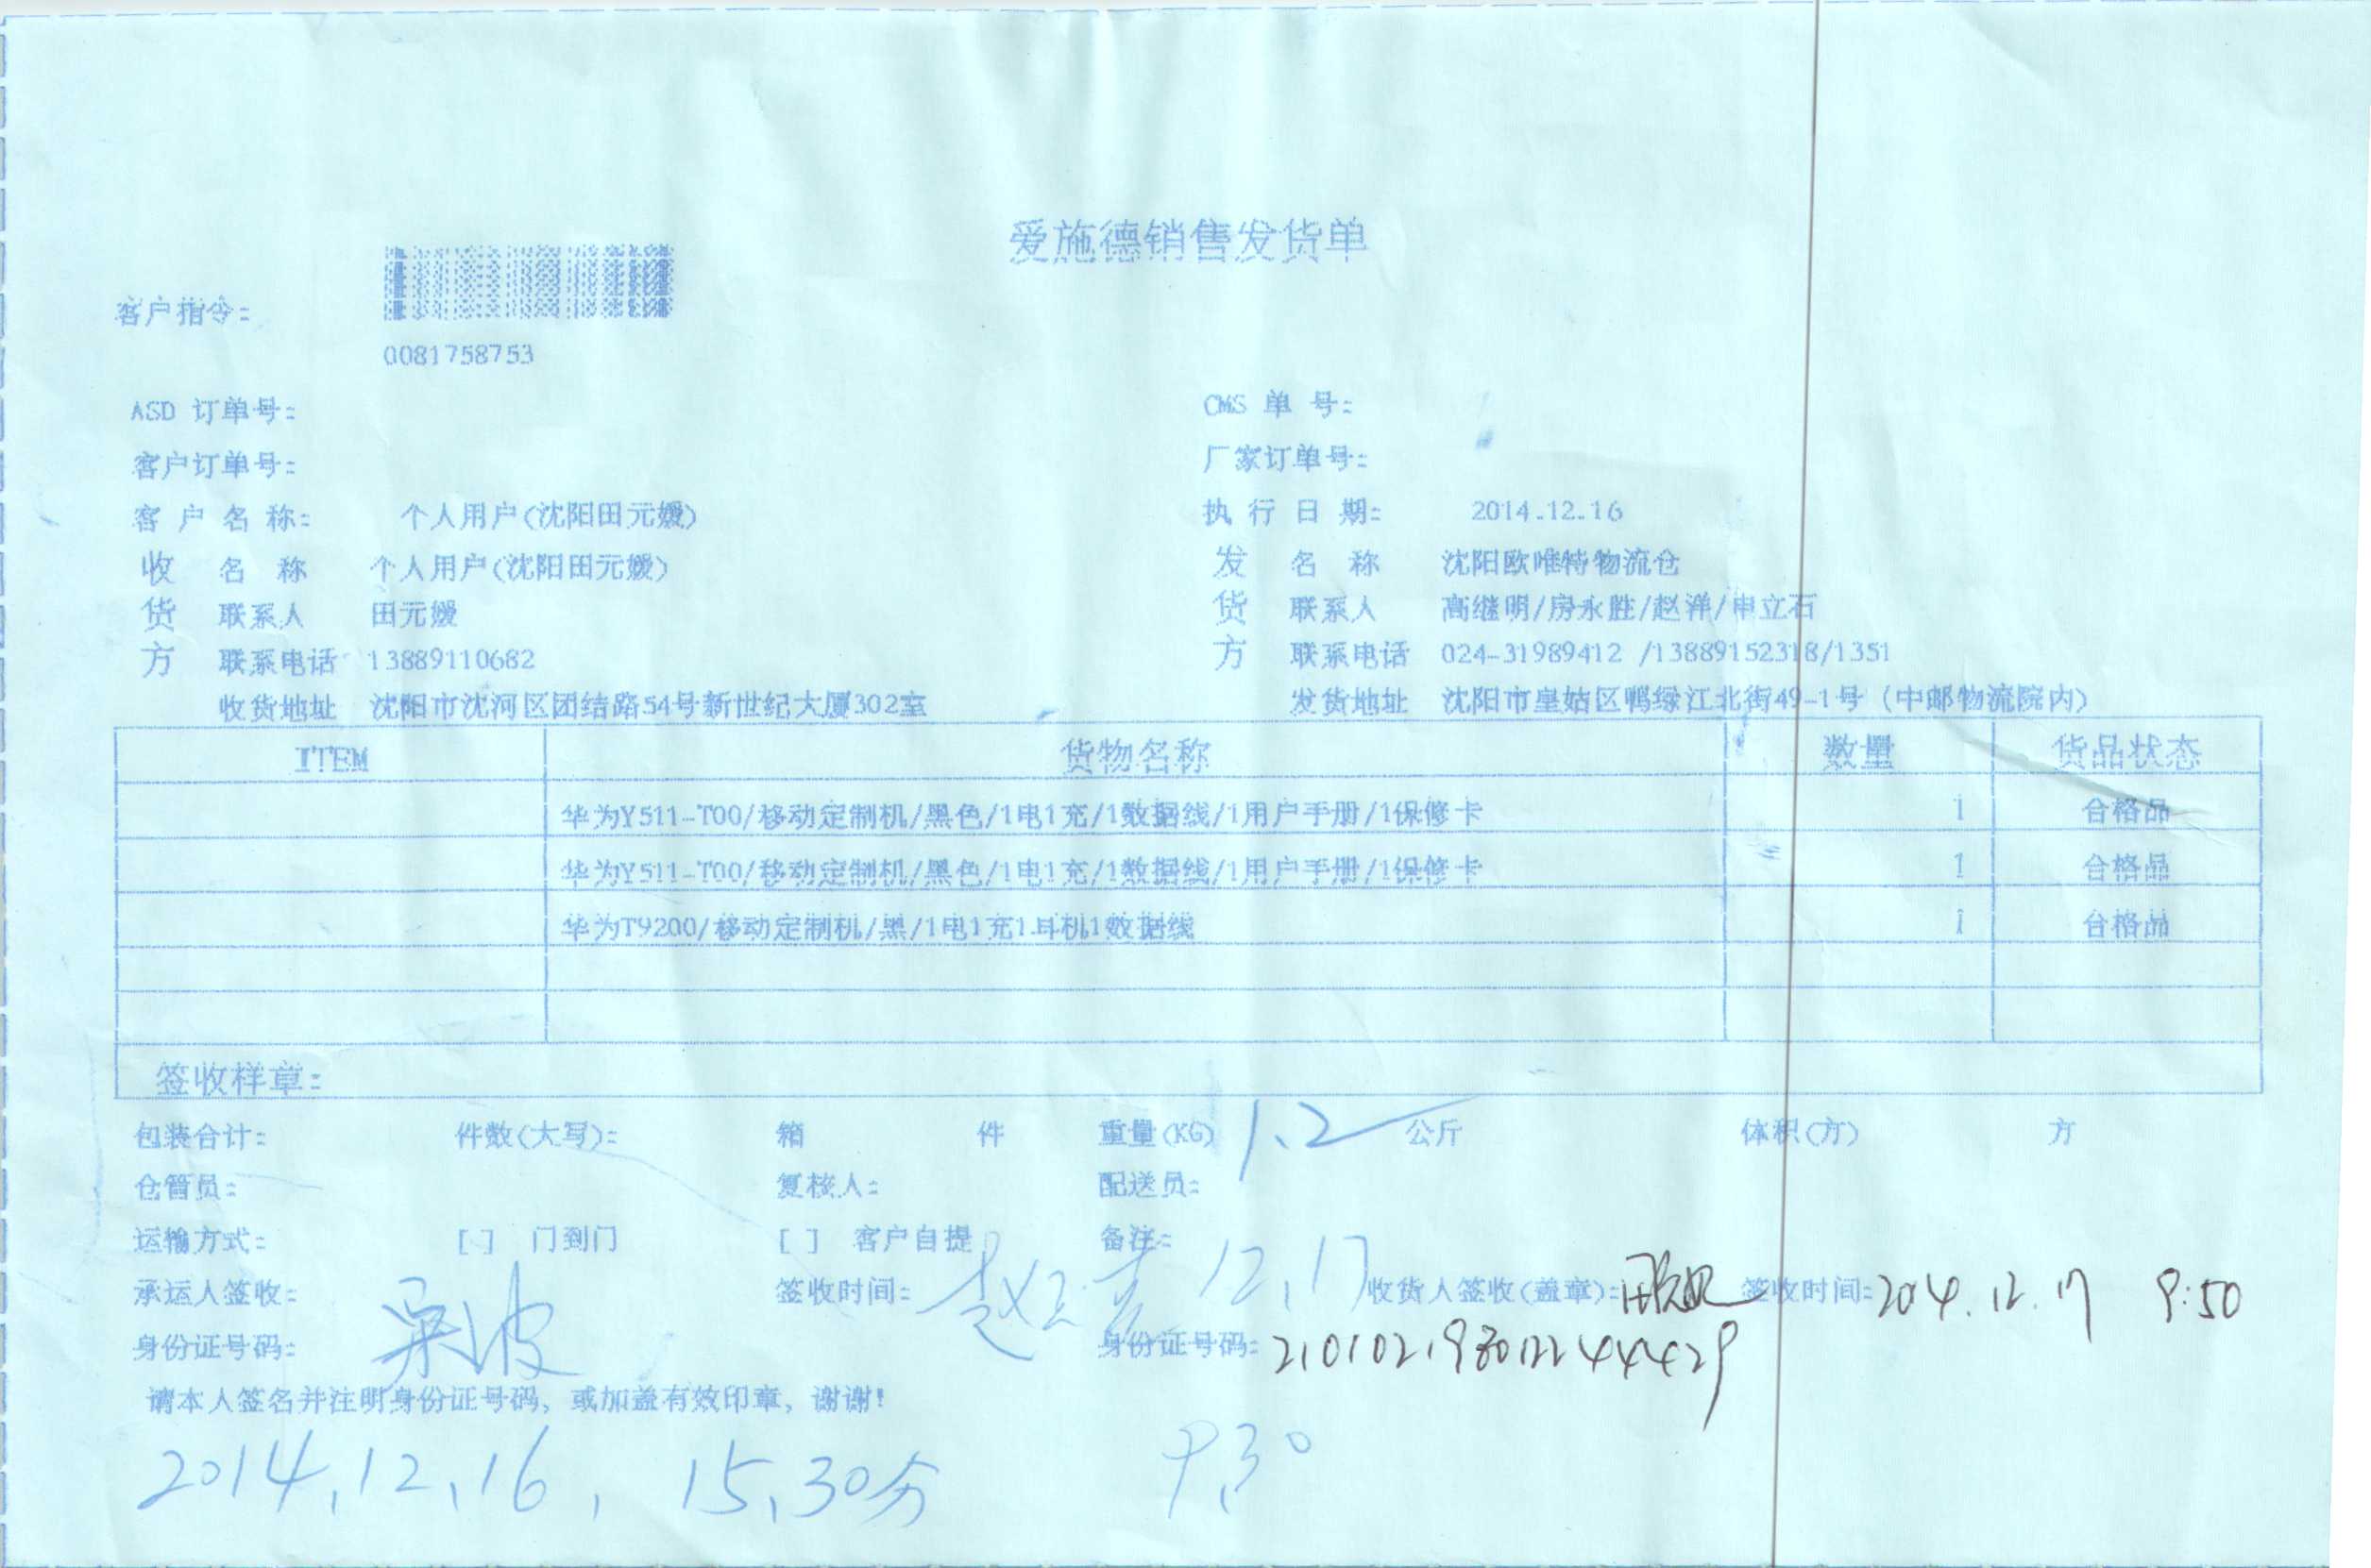 爱施德销售发货单
客户指令:
0081758753
ASD 订单号: CMS 单 号:
客户订单号: 厂家订单号:
客 户 名 称: 个人用户(沈阳田元媛) 执 行 日 期: 2014.12.16
收 名 称 个人用户(沈阳田元媛) 发 名 称 沈阳欧唯特物流仓
货 联系人 田元媛 货 联系人 高继明/房永胜/赵洋/申立石
方 联系电话 13889110682 方 联系电话 024-31989412 /13889152318/1351
收货地址 沈阳市沈河区团结路54号新世纪大厦302室 发货地址 沈阳市皇姑区鸭绿江北街49-1号 (中邮物流院内)
ITEM 货物名称 数量 货品状态
华为Y511-T00/移动定制机/黑色/1电1充/1数据线/1用户手册/1保修卡 1 合格品
华为Y511-T00/移动定制机/黑色/1电1充/1数据线/1用户手册/1保修卡 1 合格品
华为T9200/移动定制机/黑/1电1充1耳机1数据线 1 合格品
签收样章:
包装合计: 件数(大写): 箱 件 重量(KG) 1.2 公斤 体积(方) 方
仓管员: 复核人: 配送员:
运输方式: [ ] 门到门 [ ] 客户自提 备注:
承运人签收: 吴波 签收时间: 12.17 收货人签收(盖章): 签收时间: 2014.12.17 9:50
身份证号码: 身份证号码:
请本人签名并注明身份证号码, 或加盖有效印章, 谢谢!
2014.12.16. 15.30分 9.30